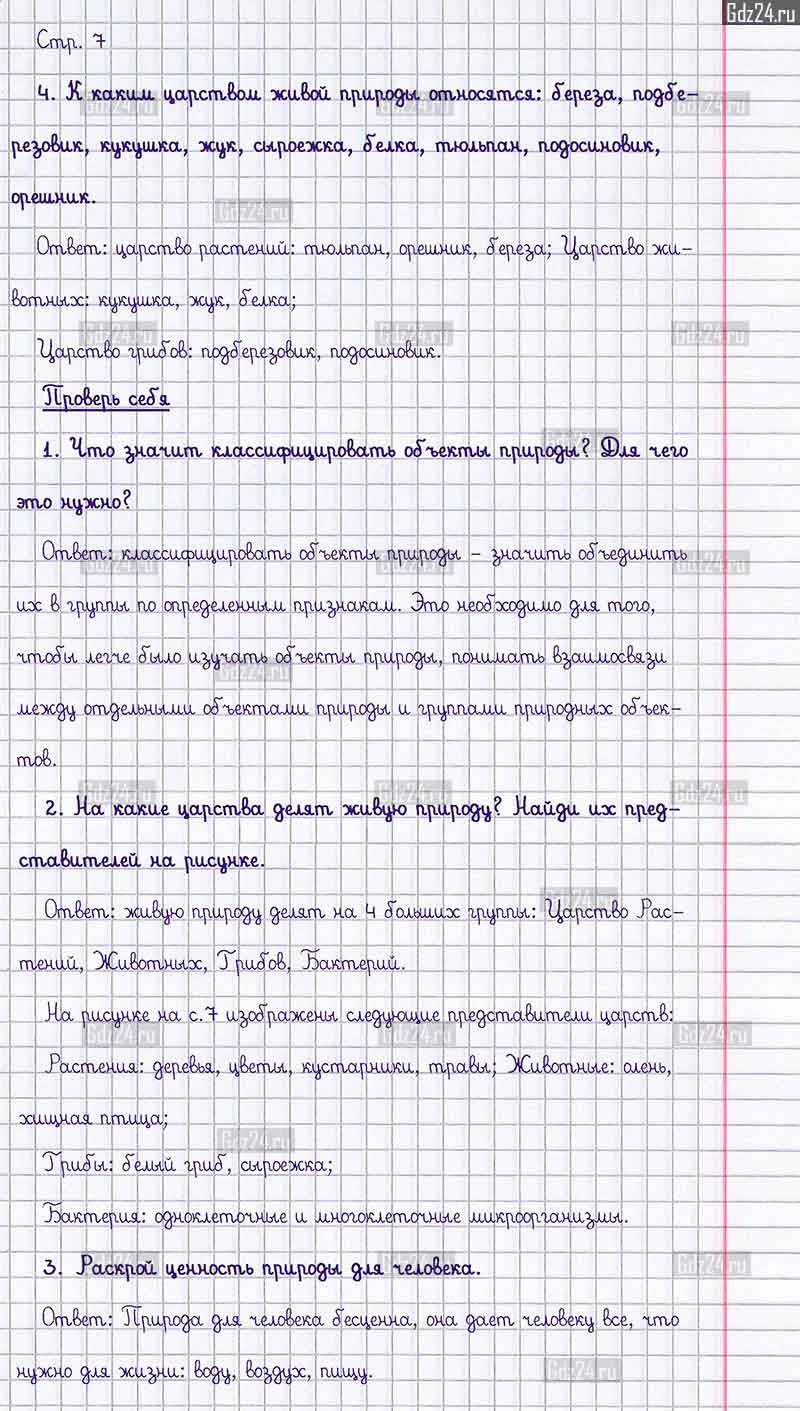 Gdz24.ru
Стр. 7
4. К каким царствам живой природы относятся: береза, подбе-
резовик, кукушка, жук, сыроежка, белка, тюльпан, подосиновик,
орешник.
Ответ: царство растений: тюльпан, орешник, береза; Царство жи-
вотных: кукушка, жук, белка;
Царство грибов: подберезовик, подосиновик.
Проверь себя
1. Что значит классифицировать объекты природы? Для чего
это нужно?
Ответ: классифицировать объекты природы – значить объединить
их в группы по определенным признакам. Это необходимо для того,
чтобы легче было изучать объекты природы, понимать взаимосвязи
между отдельными объектами природы и группами природных объек-
тов.
2. На какие царства делят живую природу? Найди их пред-
ставителей на рисунке.
Ответ: живую природу делят на 4 больших группы: Царство Рас-
тений, Животных, Грибов, Бактерий.
На рисунке на с.7 изображены следующие представители царств:
Растения: деревья, цветы, кустарники, травы; Животные: олень,
хищная птица;
Грибы: белый гриб, сыроежка;
Бактерия: одноклеточные и многоклеточные микроорганизмы.
3. Раскрой ценность природы для человека.
Ответ: Природа для человека бесценна, она дает человеку все, что
нужно для жизни: воду, воздух, пищу.